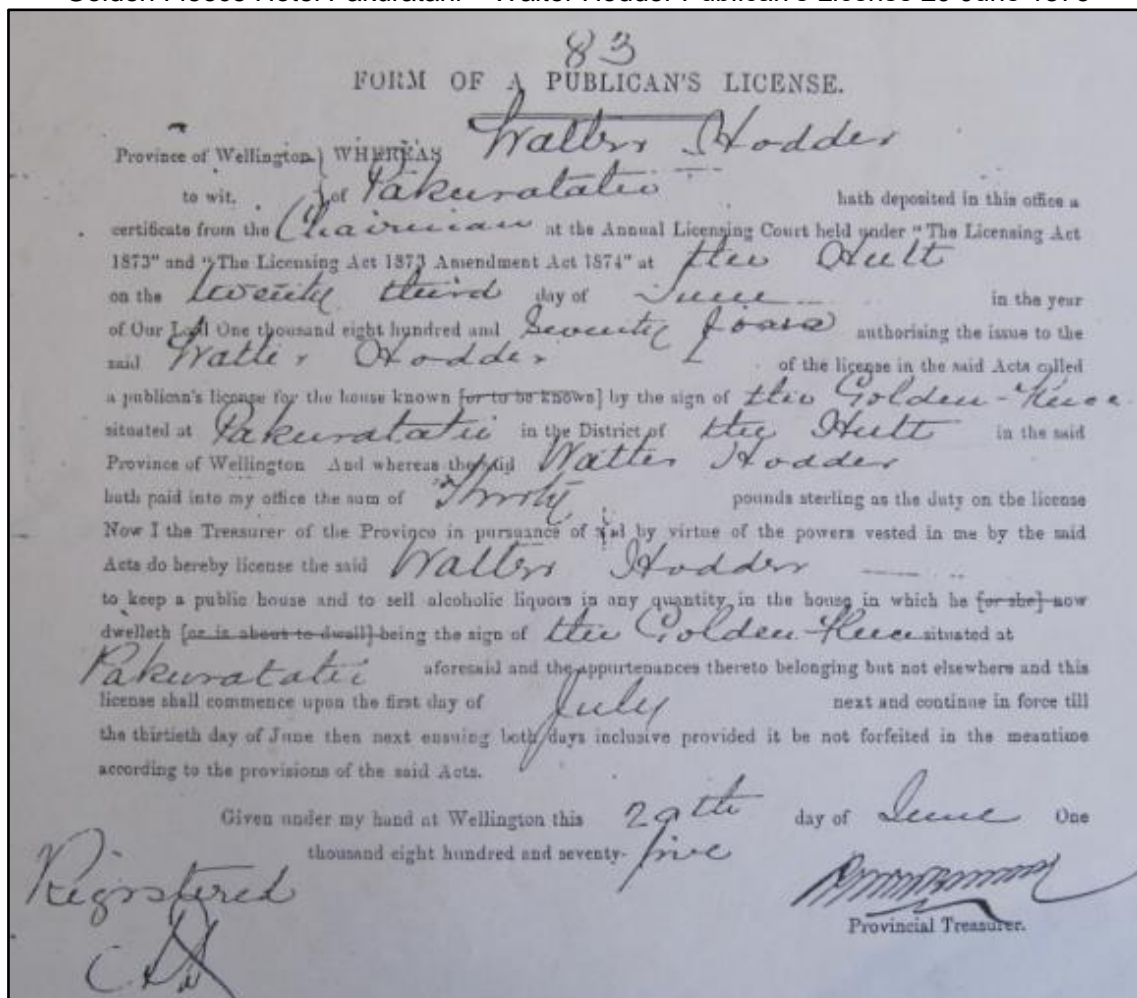 Golden Fleece Hotel Pakuratahi – Walter Hodder Publican's License 29 June
83
FORM OF A PUBLICAN'S LICENSE.
Province of Wellington } WHEREAS Walter Hodder
to wit. } of Pakuratatie hath deposited in this office a
certificate from the Chairman at the Annual Licensing Court held under "The Licensing Act
1873" and "The Licensing Act 1873 Amendment Act 1874" at the Hutt
on the twenty third day of June in the year
of Our Lord One thousand eight hundred and Seventy authorising the issue to the
said Walter Hodder of the license in the said Acts called
a publican's license for the house known [or to be known] by the sign of the Golden-Fleece
situated at Pakuratatie in the District of the Hutt in the said
Province of Wellington And whereas the said Walter Hodder
hath paid into my office the sum of Thirty pounds sterling as the duty on the license
Now I the Treasurer of the Province in pursuance of and by virtue of the powers vested in me by the said
Acts do hereby license the said Walter Hodder
to keep a public house and to sell alcoholic liquors in any quantity in the house in which he [or she] now
dwelleth [or is about to dwell] being the sign of the Golden-Fleece situated at
Pakuratatie aforesaid and the appurtenances thereto belonging but not elsewhere and this
license shall commence upon the first day of July next and continue in force till
the thirtieth day of June then next ensuing both days inclusive provided it be not forfeited in the meantime
according to the provisions of the said Acts.
Given under my hand at Wellington this 29th day of June One
thousand eight hundred and seventy-five
Registered
Provincial Treasurer.